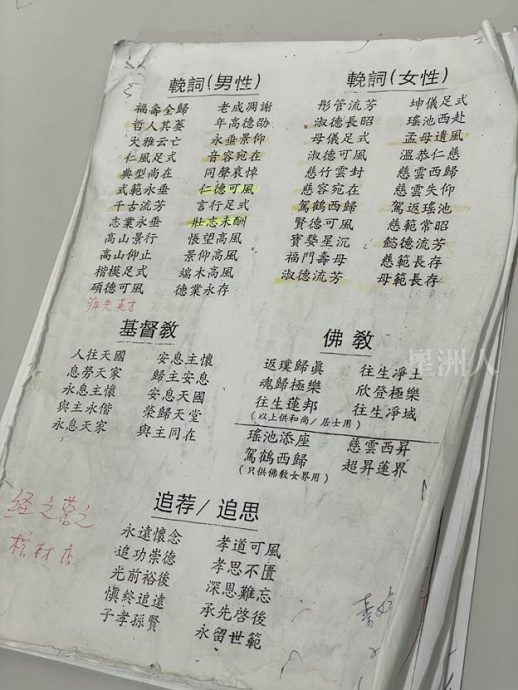 輓詞(男性)
福壽全歸 老成凋謝
哲人其萎 年高德劭
大雅云亡 永垂景仰
仁風足式 音容宛在
典型尚在 同聲哀悼
式範永垂 仁德可風
千古流芳 言行足式
志業永垂 壯志未酬
高山景行 悵望高風
高山仰止 景仰高風
楷模足式 端木高風
碩德可風 德業永存
痛失英才
輓詞(女性)
彤管流芳 坤儀足式
淑德長昭 瑤池西赴
母儀足式 孟母遺風
淑德可風 溫恭仁慈
慈竹雲封 慈雲西歸
慈容宛在 慈雲失仰
駕鶴西歸 駕返瑤池
賢德可風 慈範常昭
寶婺星沉 懿德流芳
福門壽母 慈範長存
淑德流芳 母範長存
基督教
人往天國 安息主懷
息勞天家 歸主安息
永息主懷 安息天國
與主永偕 榮歸天堂
永息天家 與主同在
佛教
返璞歸真 往生淨土
魂歸極樂 欣登極樂
往生蓮邦 往生淨域
(以上供和尚/居士用)
瑤池添座 慈雲西昇
駕鶴西歸 超昇蓮界
(只供佛教女界用)
追荐/追思
永遠懷念 孝道可風
追功崇德 孝思不匱
光前裕後 深恩難忘
慎終追遠 承先啓後
子孝孫賢 永留世範
星洲人